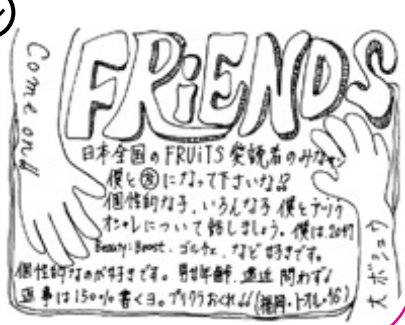 Come on!!
FRiENDS
日本全国のFRUiTS愛読者のみなサン
僕と㊛になって下さいな!?
個性的な子、いろんな子 僕と
オシャレについて話しましょう。僕は、20471
Beauty:Beast、ゴルチェ、など好きです。
個性的なのが好きです。男女年齢、遠近 問わず!
返事は150%書くヨ。プリクラおくれ!!(福岡・トオル・16)
大ボシュウ